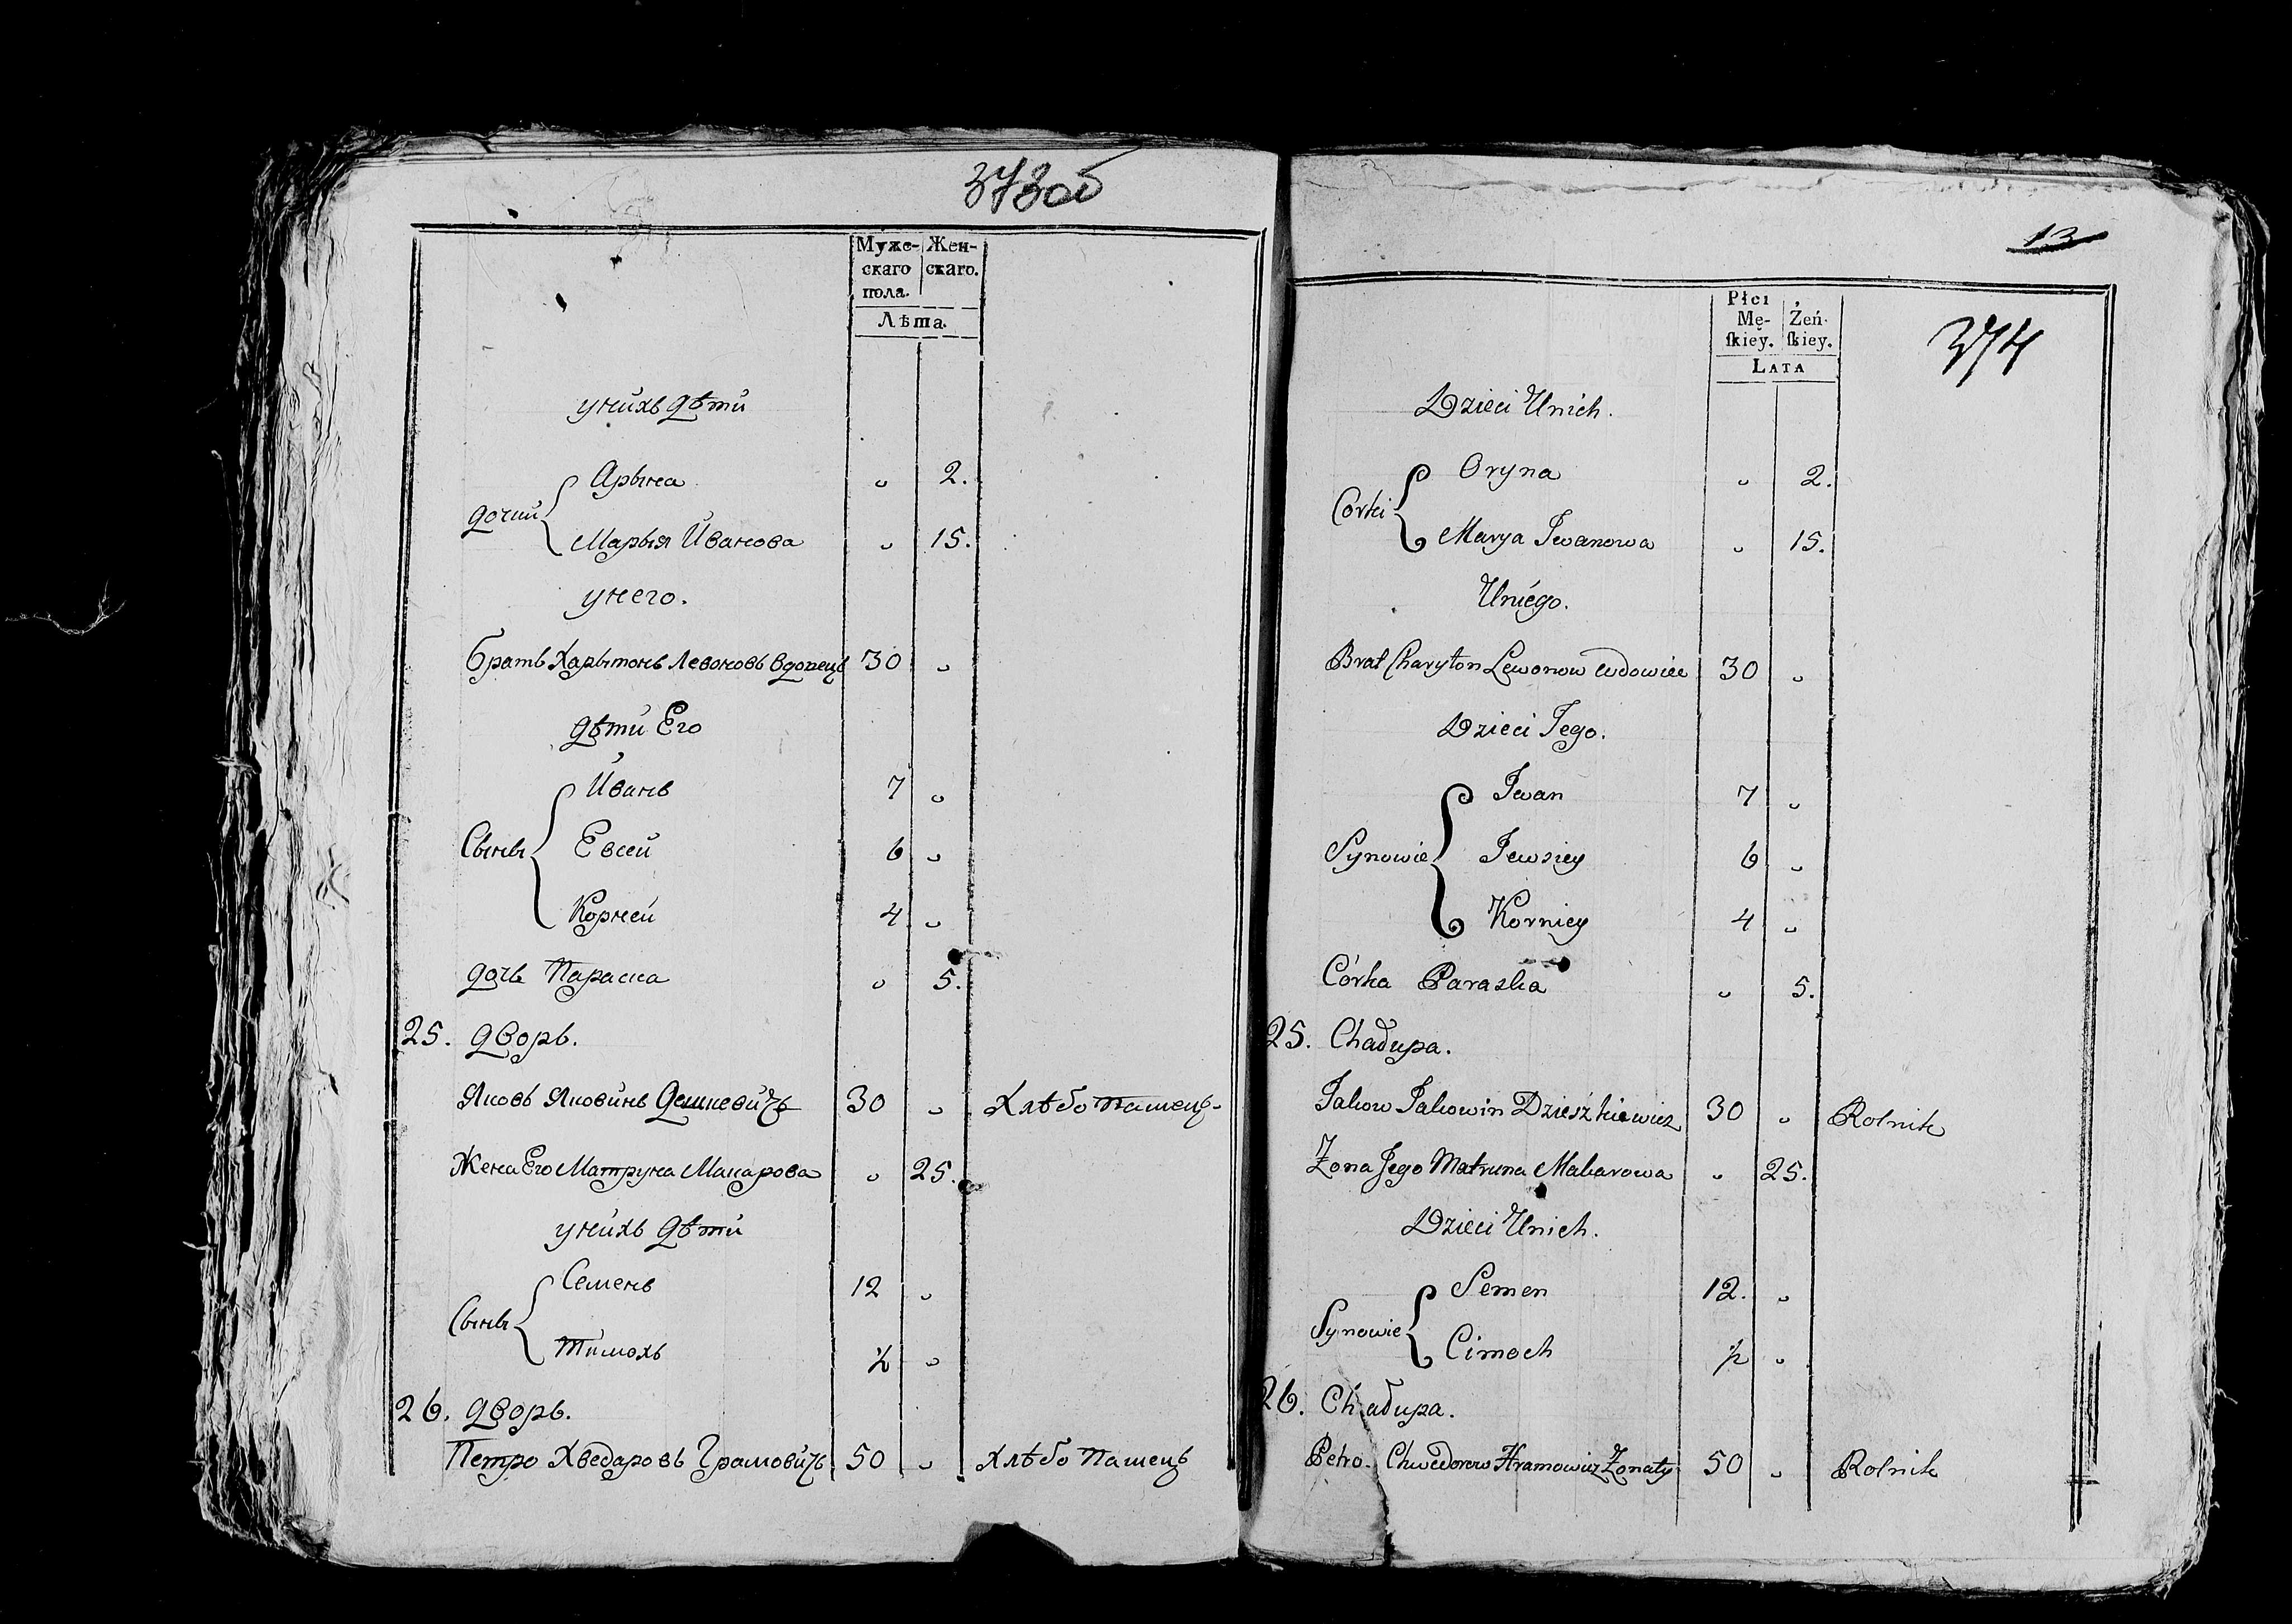 373об
Муже- Жен-
скаго скаго.
пола.
Лѣта.
унихъ дѣти
Арына " 2.
дочки
Марыя Иванова " 15.
унего.
братъ Харытонъ Левоновъ вдовецъ 30 "
дѣти Его
Иванъ 7 "
Сыны Евсей 6 "
Корней 4 "
дочь Параска " 5.
25. дворъ.
Яковъ Яковинъ Дешкевичъ 30 " Хлѣбопашецъ.
Жена Его Матруна Макарова " 25.
унихъ дѣти
Семенъ 12 "
Сыны
Тимохъ ½ "
26. дворъ.
Петро Хведаровъ Грамовичъ 50 " Хлѣбопашецъ
13
374
Płci
Mę- Żeń-
ſkiey. ſkiey.
LATA
Dzieci Unich.
Oryna " 2.
Córki
Marya Iwanowa " 15.
Uniego.
Brat Charyton Lewonow wdowiec 30 "
Dzieci Jego.
Iwan 7 "
Synowie Jewsiey 6 "
Korniey 4 "
Córka Paraska " 5.
25. Chałupa.
Jakow Jakowin Dzieszkiewicz 30 " Rolnik
Żona Jego Matruna Makarowa " 25.
Dzieci Unich.
Semen 12. "
Synowie
Cimoch ½ "
26. Chałupa.
Petro Chwedorow Hramowicz Żonaty 50 " Rolnik